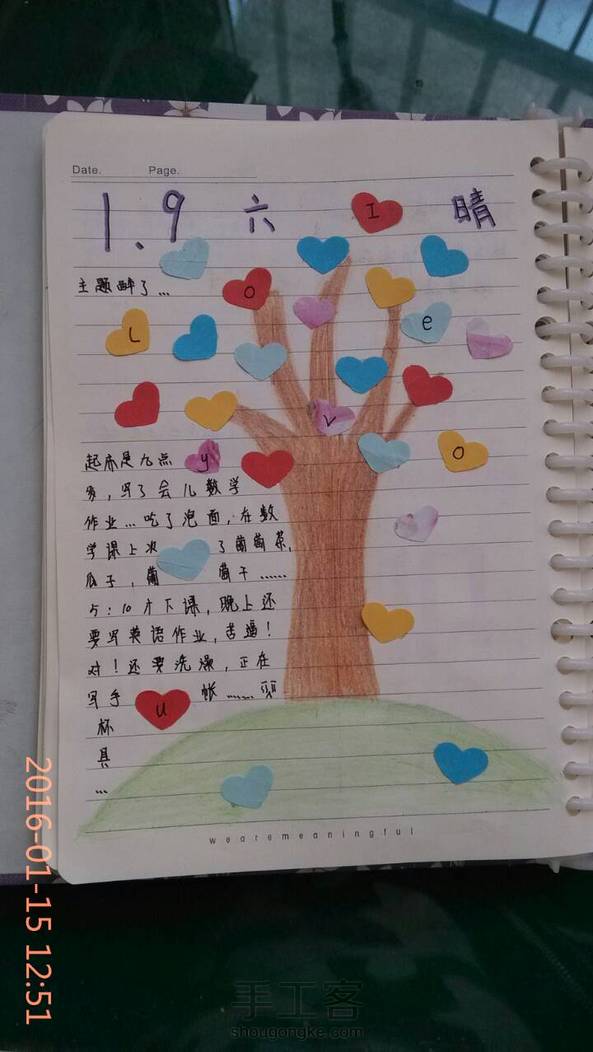 Date. Page.
1.9 六 I 晴
主题醉了...
o
L e
v
起床是九点 y o
多，写了会儿数学
作业...吃了泡面，在数
学课上 了葡萄
瓜子，葡 萄干……
5:10才下课，晚上还
要写英语作业，苦逼！
对！还要洗澡，正在
写手 u 帐……
杯
具
...
wearemeaningful
2016-01-15 12:51
手工客
shougongke.com